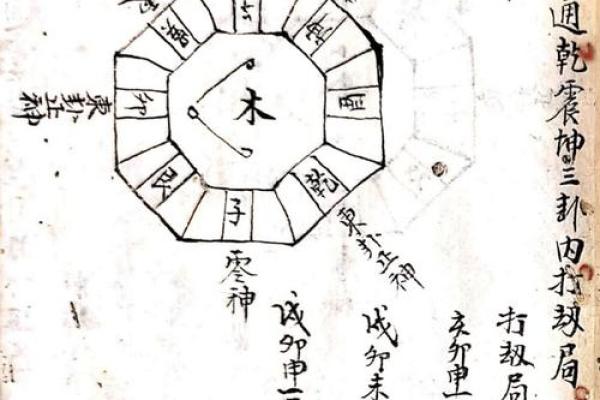 通乾震坤三卦内打劫局
打劫局
亥卯申一
戌卯未
戌卯申一
木
卯
酉
乾
子
東卦正神
東卦正神
零神